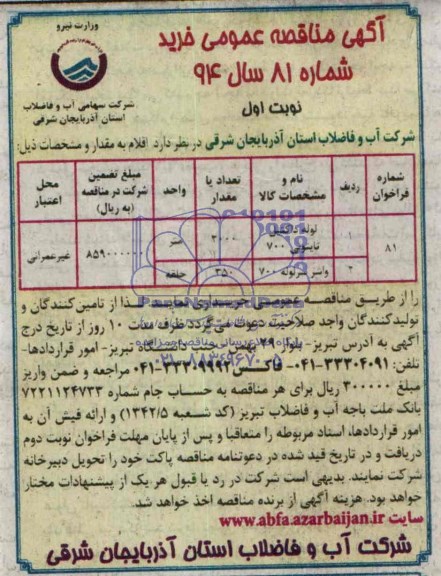 آگهی مناقصه عمومی خرید
شماره ۸۱ سال ۹۴
وزارت نیرو
نوبت اول
شرکت سهامی آب و فاضلاب
استان آذربایجان شرقی
شرکت آب و فاضلاب استان آذربایجان شرقی در نظر دارد اقلام به مقدار و مشخصات ذیل:
شماره فراخوان ردیف نام و مشخصات کالا تعداد یا مقدار واحد مبلغ تضمین شرکت در مناقصه (به ریال) محل اعتبار
۸۱ ۱ لوله داکتیل تایتونی ۷۰۰ متر غیرعمرانی
۲ واشر سرلوله ۷۰۰ ۳۵۰ حلقه
را از طریق مناقصه عمومی خریداری نماید. لذا از تامین کنندگان و
تولیدکنندگان واجد صلاحیت دعوت می گردد ظرف مدت ۱۰ روز از تاریخ درج
آگهی به آدرس تبریز- بلوار ۲۹ بهمن- دانشگاه تبریز- امور قراردادها-
تلفن: ۳۳۳۰۴۰۹۱-۰۴۱ فاکس: ۳۳۳۰۹۹۹۳-۰۴۱ مراجعه و ضمن واریز
مبلغ ۳۰۰۰۰۰ ریال برای هر مناقصه به حساب جام شماره ۷۲۲۱۱۲۴۷۳۳
بانک ملت باجه آب و فاضلاب تبریز (کد شعبه ۱۳۴۲/۵) و ارائه فیش آن به
امور قراردادها، اسناد مربوطه را متعاقبا و پس از پایان مهلت فراخوان نوبت دوم
دریافت و در تاریخ قید شده در دعوتنامه مناقصه پاکت خود را تحویل دبیرخانه
شرکت نمایند. بدیهی است شرکت در رد یا قبول هر یک از پیشنهادات مختار
خواهد بود. هزینه آگهی از برنده مناقصه اخذ خواهد شد.
سایت www.abfa.azarbaijan.ir
شرکت آب و فاضلاب استان آذربایجان شرقی